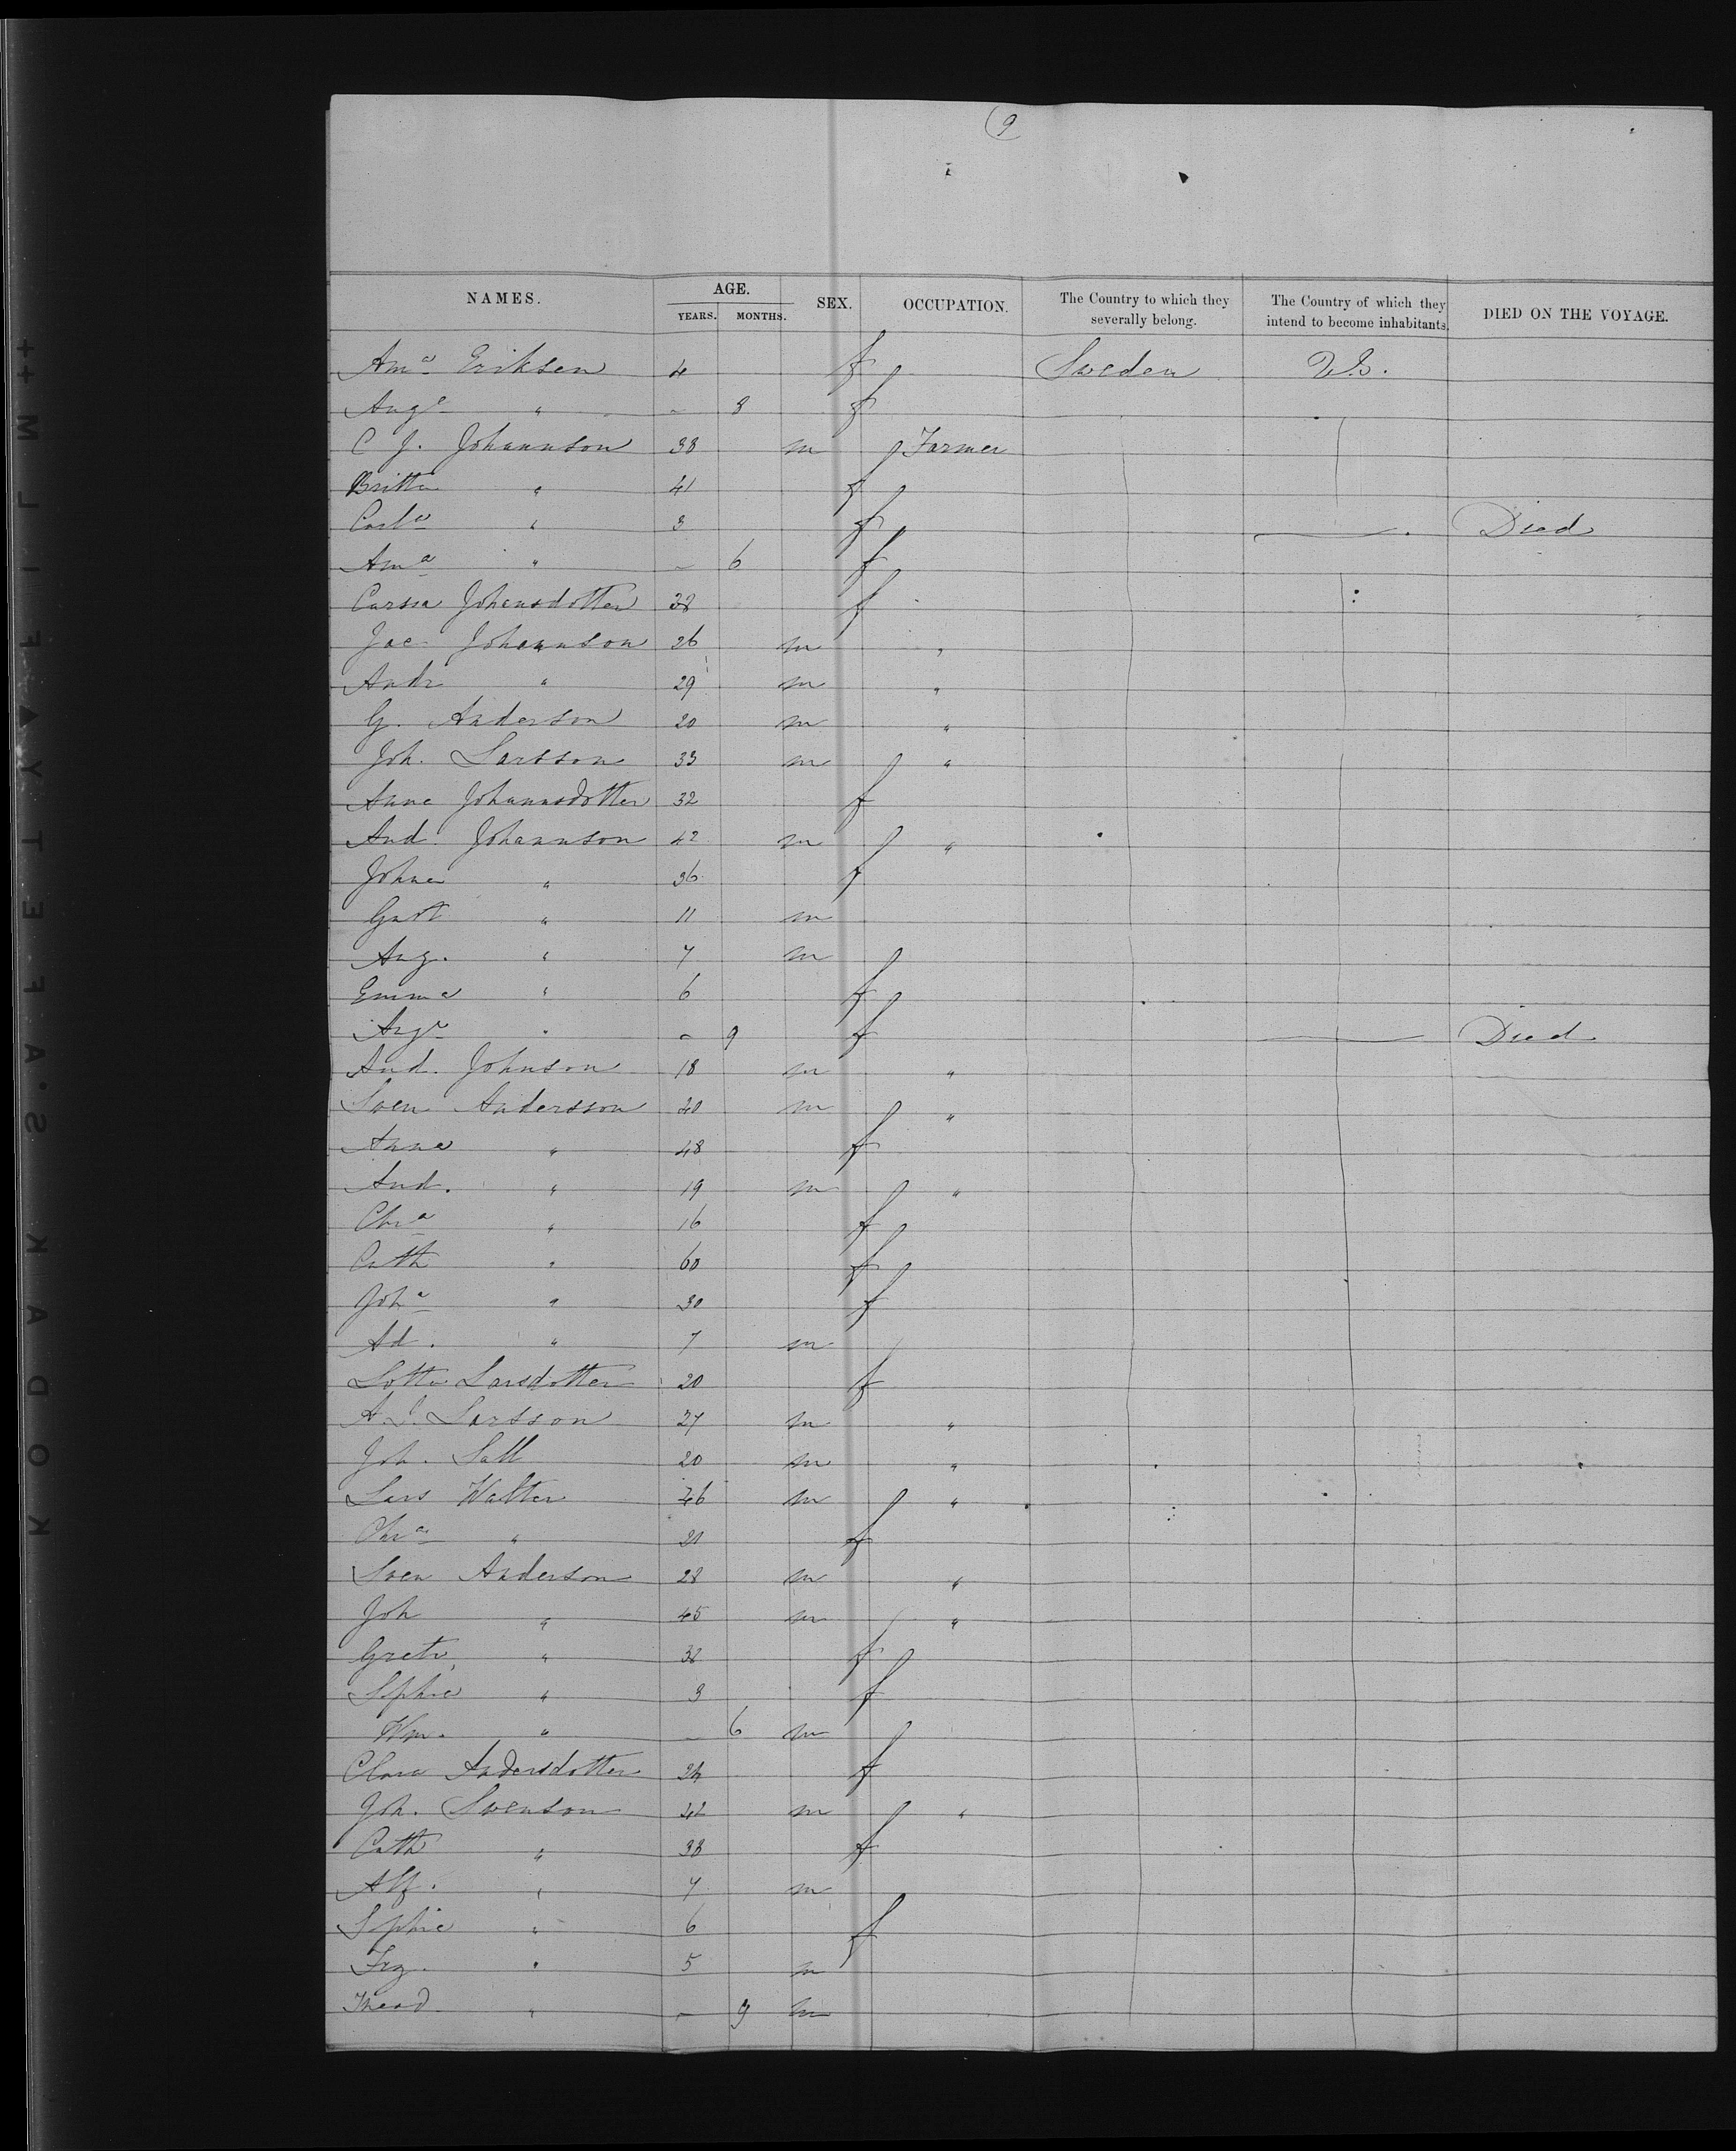 9
NAMES. AGE. SEX. OCCUPATION. The Country to which they severally belong. The Country of which they intend to become inhabitants. DIED ON THE VOYAGE.
YEARS. MONTHS.
Ama Eriksen 4 f Sweden U.S.
Auge " – 8 f
C J. Johannson 38 m Farmer
Britta " 41 f
Carla " 3 f Died
Ama " – 6 f
Carssa Johansdotter 38 f
Jac Johannson 26 m "
Andr " 29 m "
G. Anderson 20 m "
Joh. Larsson 33 m "
Anna Johannsdotter 32 f
And. Johannson 42 m "
Johna " 36 f
Gust " 11 m
Aug. " 7 m
Emma " 6 f
Auga " – 9 f Died
And. Johnson 18 m "
Sven Andersson 40 m "
Anna " 48 f
And. " 19 m "
Chra " 16 f
Cath " 60 f
Joha " 30 f
Ad. " 7 m
Lotta Larsdotter 20 f
A. Larsson 27 m "
Joh. Sall 20 m "
Lars Walter 46 m "
Chra " 21 f
Sven Anderson 28 m "
Joh " 45 m "
Greta " 38 f
Sophie " 3 f
Wm. " – 6 m
Clara Andersdotter 24 f
Joh. Swenson 42 m "
Cath " 38 f
Alf. " 7 m
Sophie " 6 f
" 5 m
" – 9 m
KODAK·SAFETY▲FILM++